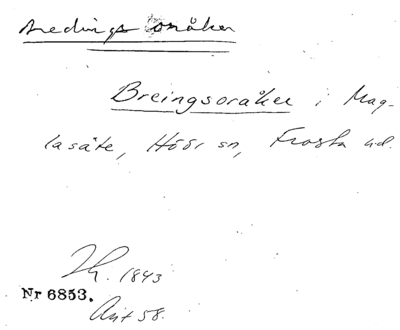 Bredingsonåker
Breingsoråker i Mag-
lasäte, Höör sn, Frosta hd.
Th. 1843
Nr 6853.
Avt 58.